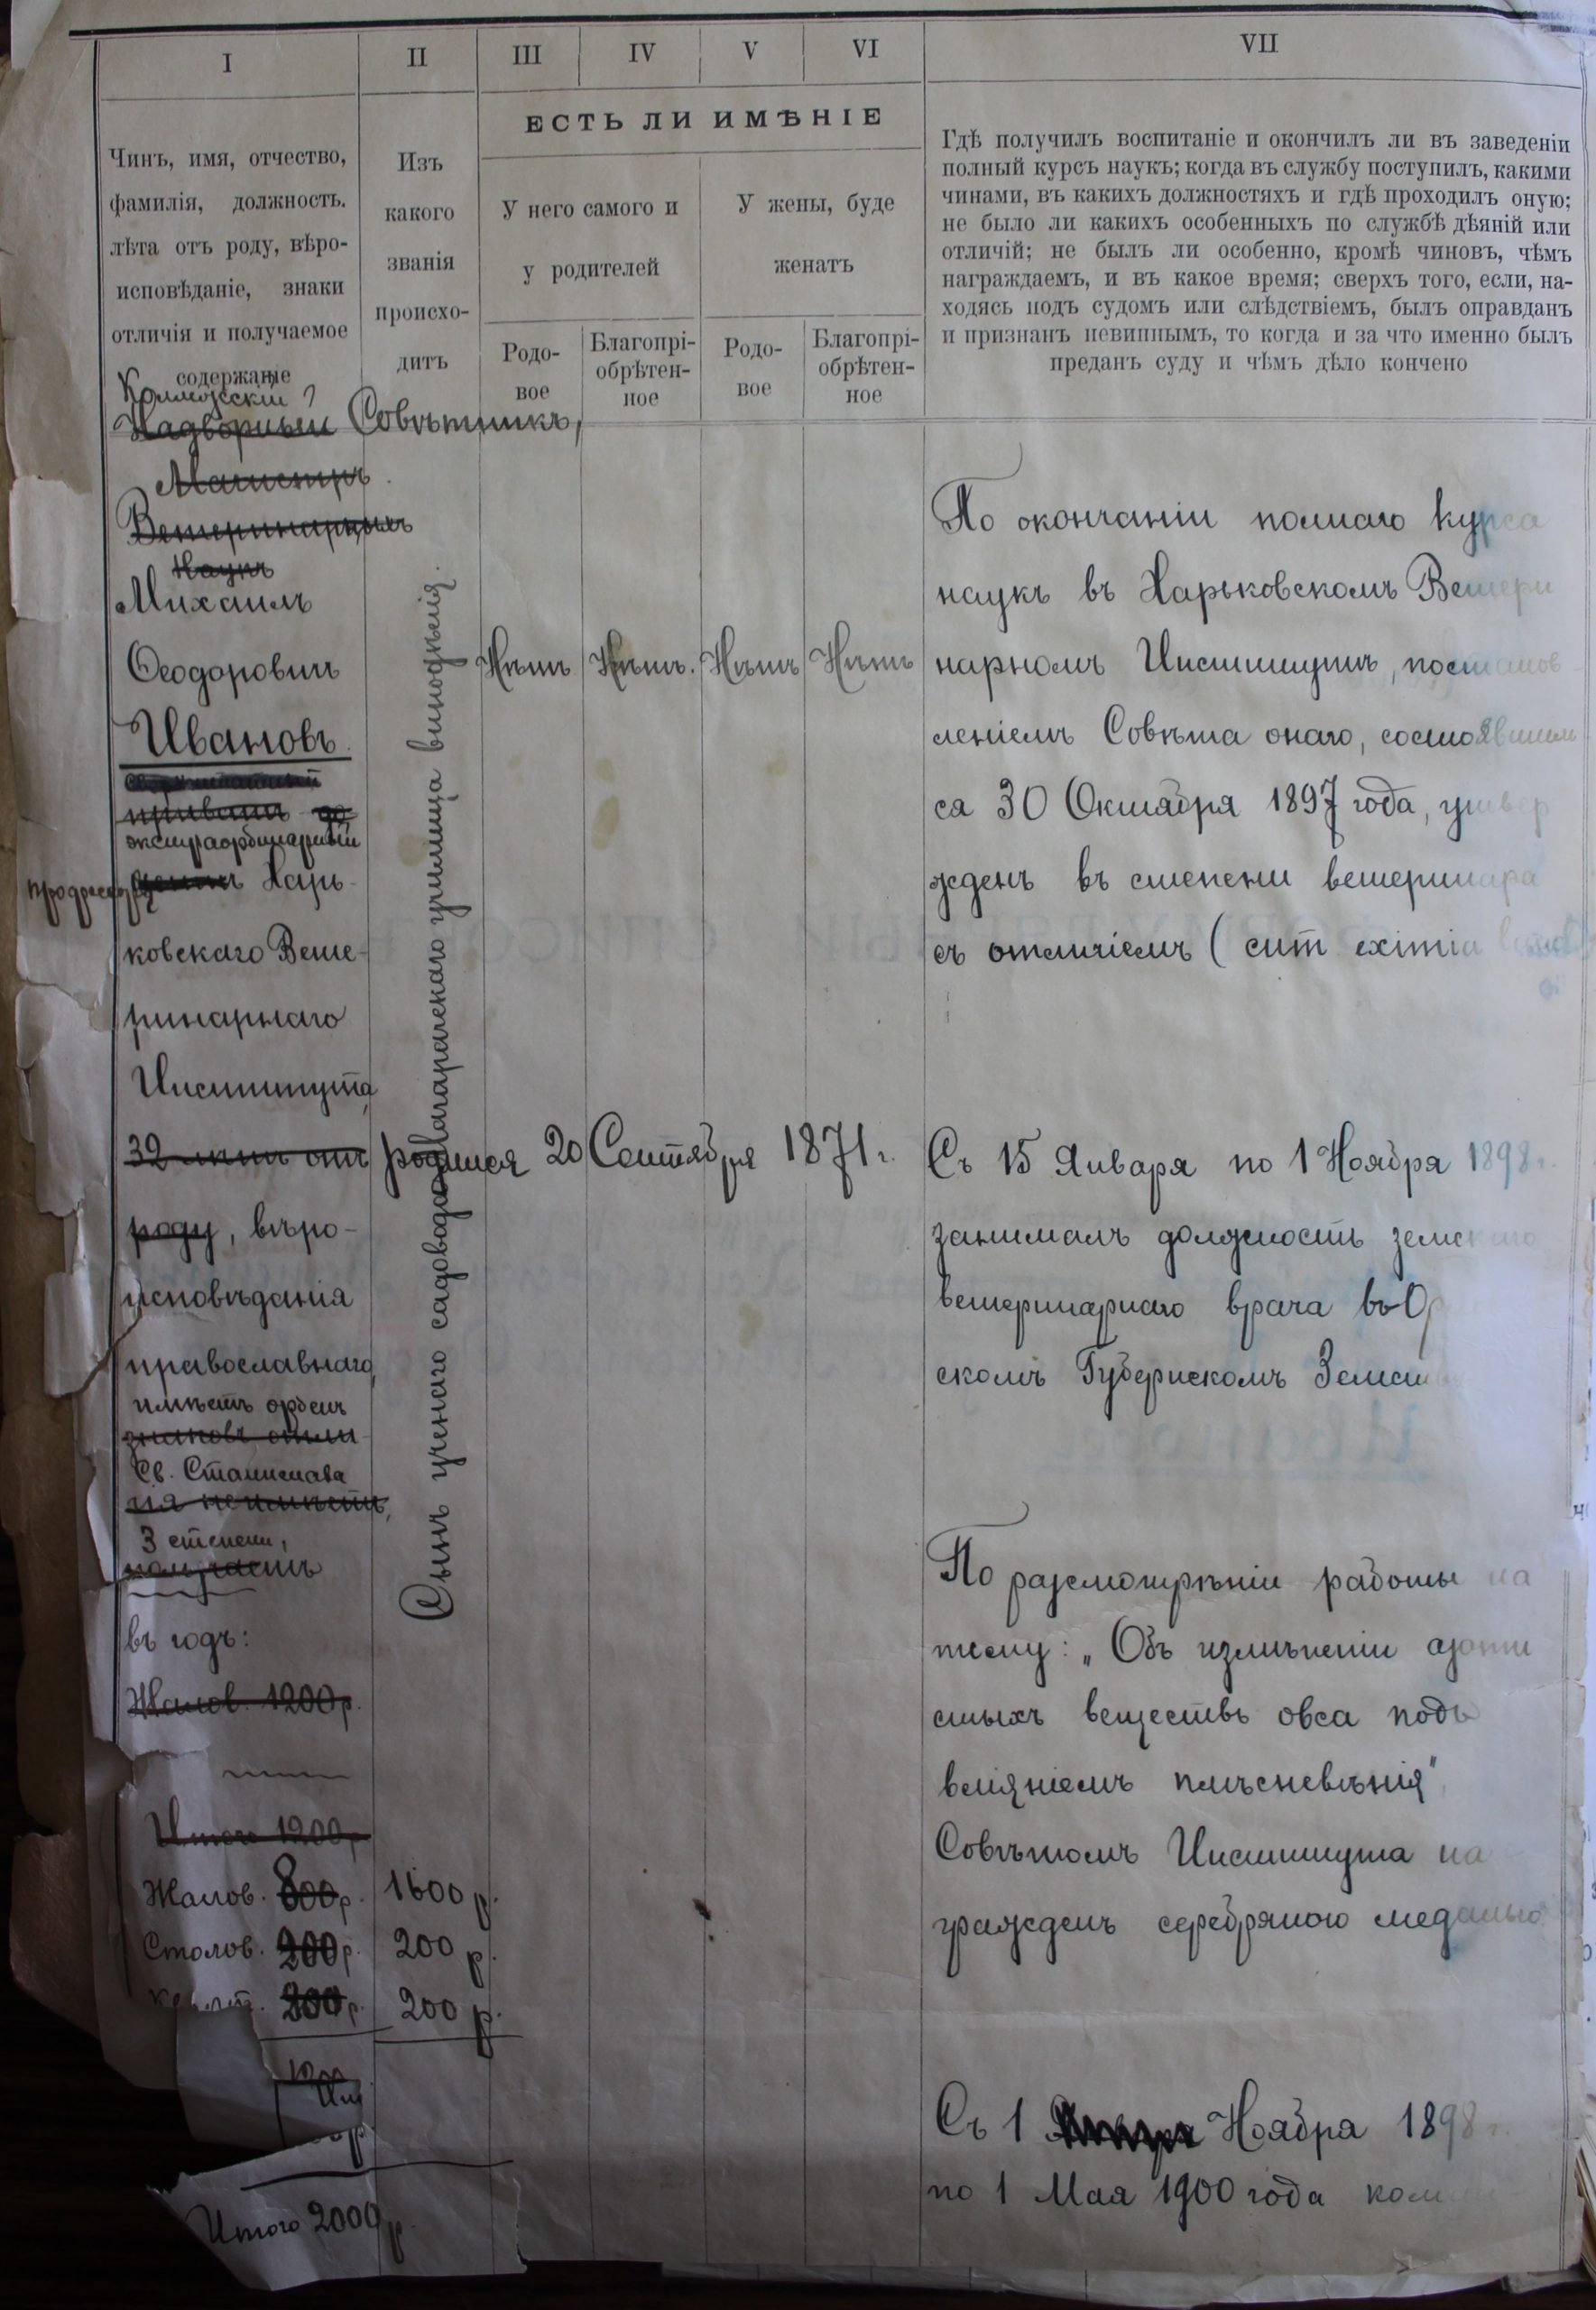 I
II
III
IV
V
VI
VII
Чинъ, имя, отчество,
фамилія, должность.
лѣта отъ роду, вѣро-
исповѣданіе, знаки
отличія и получаемое
содержаніе
Изъ
какого
званія
происхо-
дитъ
ЕСТЬ ЛИ ИМѢНІЕ
У него самого и
у родителей
У жены, буде
женатъ
Родо-
вое
Благопрі-
обрѣтен-
ное
Родо-
вое
Благопрі-
обрѣтен-
ное
Гдѣ получилъ воспитаніе и окончилъ ли въ заведеніи
полный курсъ наукъ; когда въ службу поступилъ, какими
чинами, въ какихъ должностяхъ и гдѣ проходилъ оную;
не было ли какихъ особенныхъ по службѣ дѣяній или
отличій; не былъ ли особенно, кромѣ чиновъ, чѣмъ
награждаемъ, и въ какое время; сверхъ того, если, на-
ходясь подъ судомъ или слѣдствіемъ, былъ оправданъ
и признанъ невиннымъ, то когда и за что именно былъ
преданъ суду и чѣмъ дѣло кончено
Коллежскій
Надворный Совѣтникъ,
Магистръ
Ветеринарныхъ
Наукъ
Михаилъ
Ѳеодоровичъ
Ивановъ.
приватъ-до
экстраординарный
профессоръ центъ Харь-
ковскаго Вете-
ринарнаго
Института,
32 лѣтъ отъ родился 20 Сентября 1871 г.
роду, вѣро-
исповѣданія
православнаго,
имѣетъ орденъ
знаковъ отли-
Св. Станислава
чія не имѣетъ,
3 степени,
получаетъ
въ годъ:
Жалов. 1200 р.
Итого 1200 р.
Жалов. 800 р. 1600 р.
Столов. 200 р. 200 р.
200 р. 200 р.
1200
Итого 2000 р.
Сынъ ученаго садовода Магарачскаго училища винодѣлія.
Нѣтъ
Нѣтъ.
Нѣтъ
Нѣтъ
По окончаніи полнаго курса
наукъ въ Харьковскомъ Ветери
нарномъ Институтѣ, постанов-
леніемъ Совѣта онаго, состоявшим
ся 30 Октября 1897 года, утвер
жденъ въ степени ветеринара
съ отличіемъ (cum eximia
Съ 15 Января по 1 Ноября 1898 г.
занималъ должность земскаго
ветеринарнаго врача въ
скомъ Губернскомъ Земст
По разсмотрѣніи работы на
тему: „Объ измѣненіи азоти
стыхъ веществъ овса подъ
вліяніемъ плѣсневѣнія"
Совѣтомъ Института на
гражденъ серебряною медалью
Съ 1 Ноября 1898 г.
по 1 Мая 1900 года